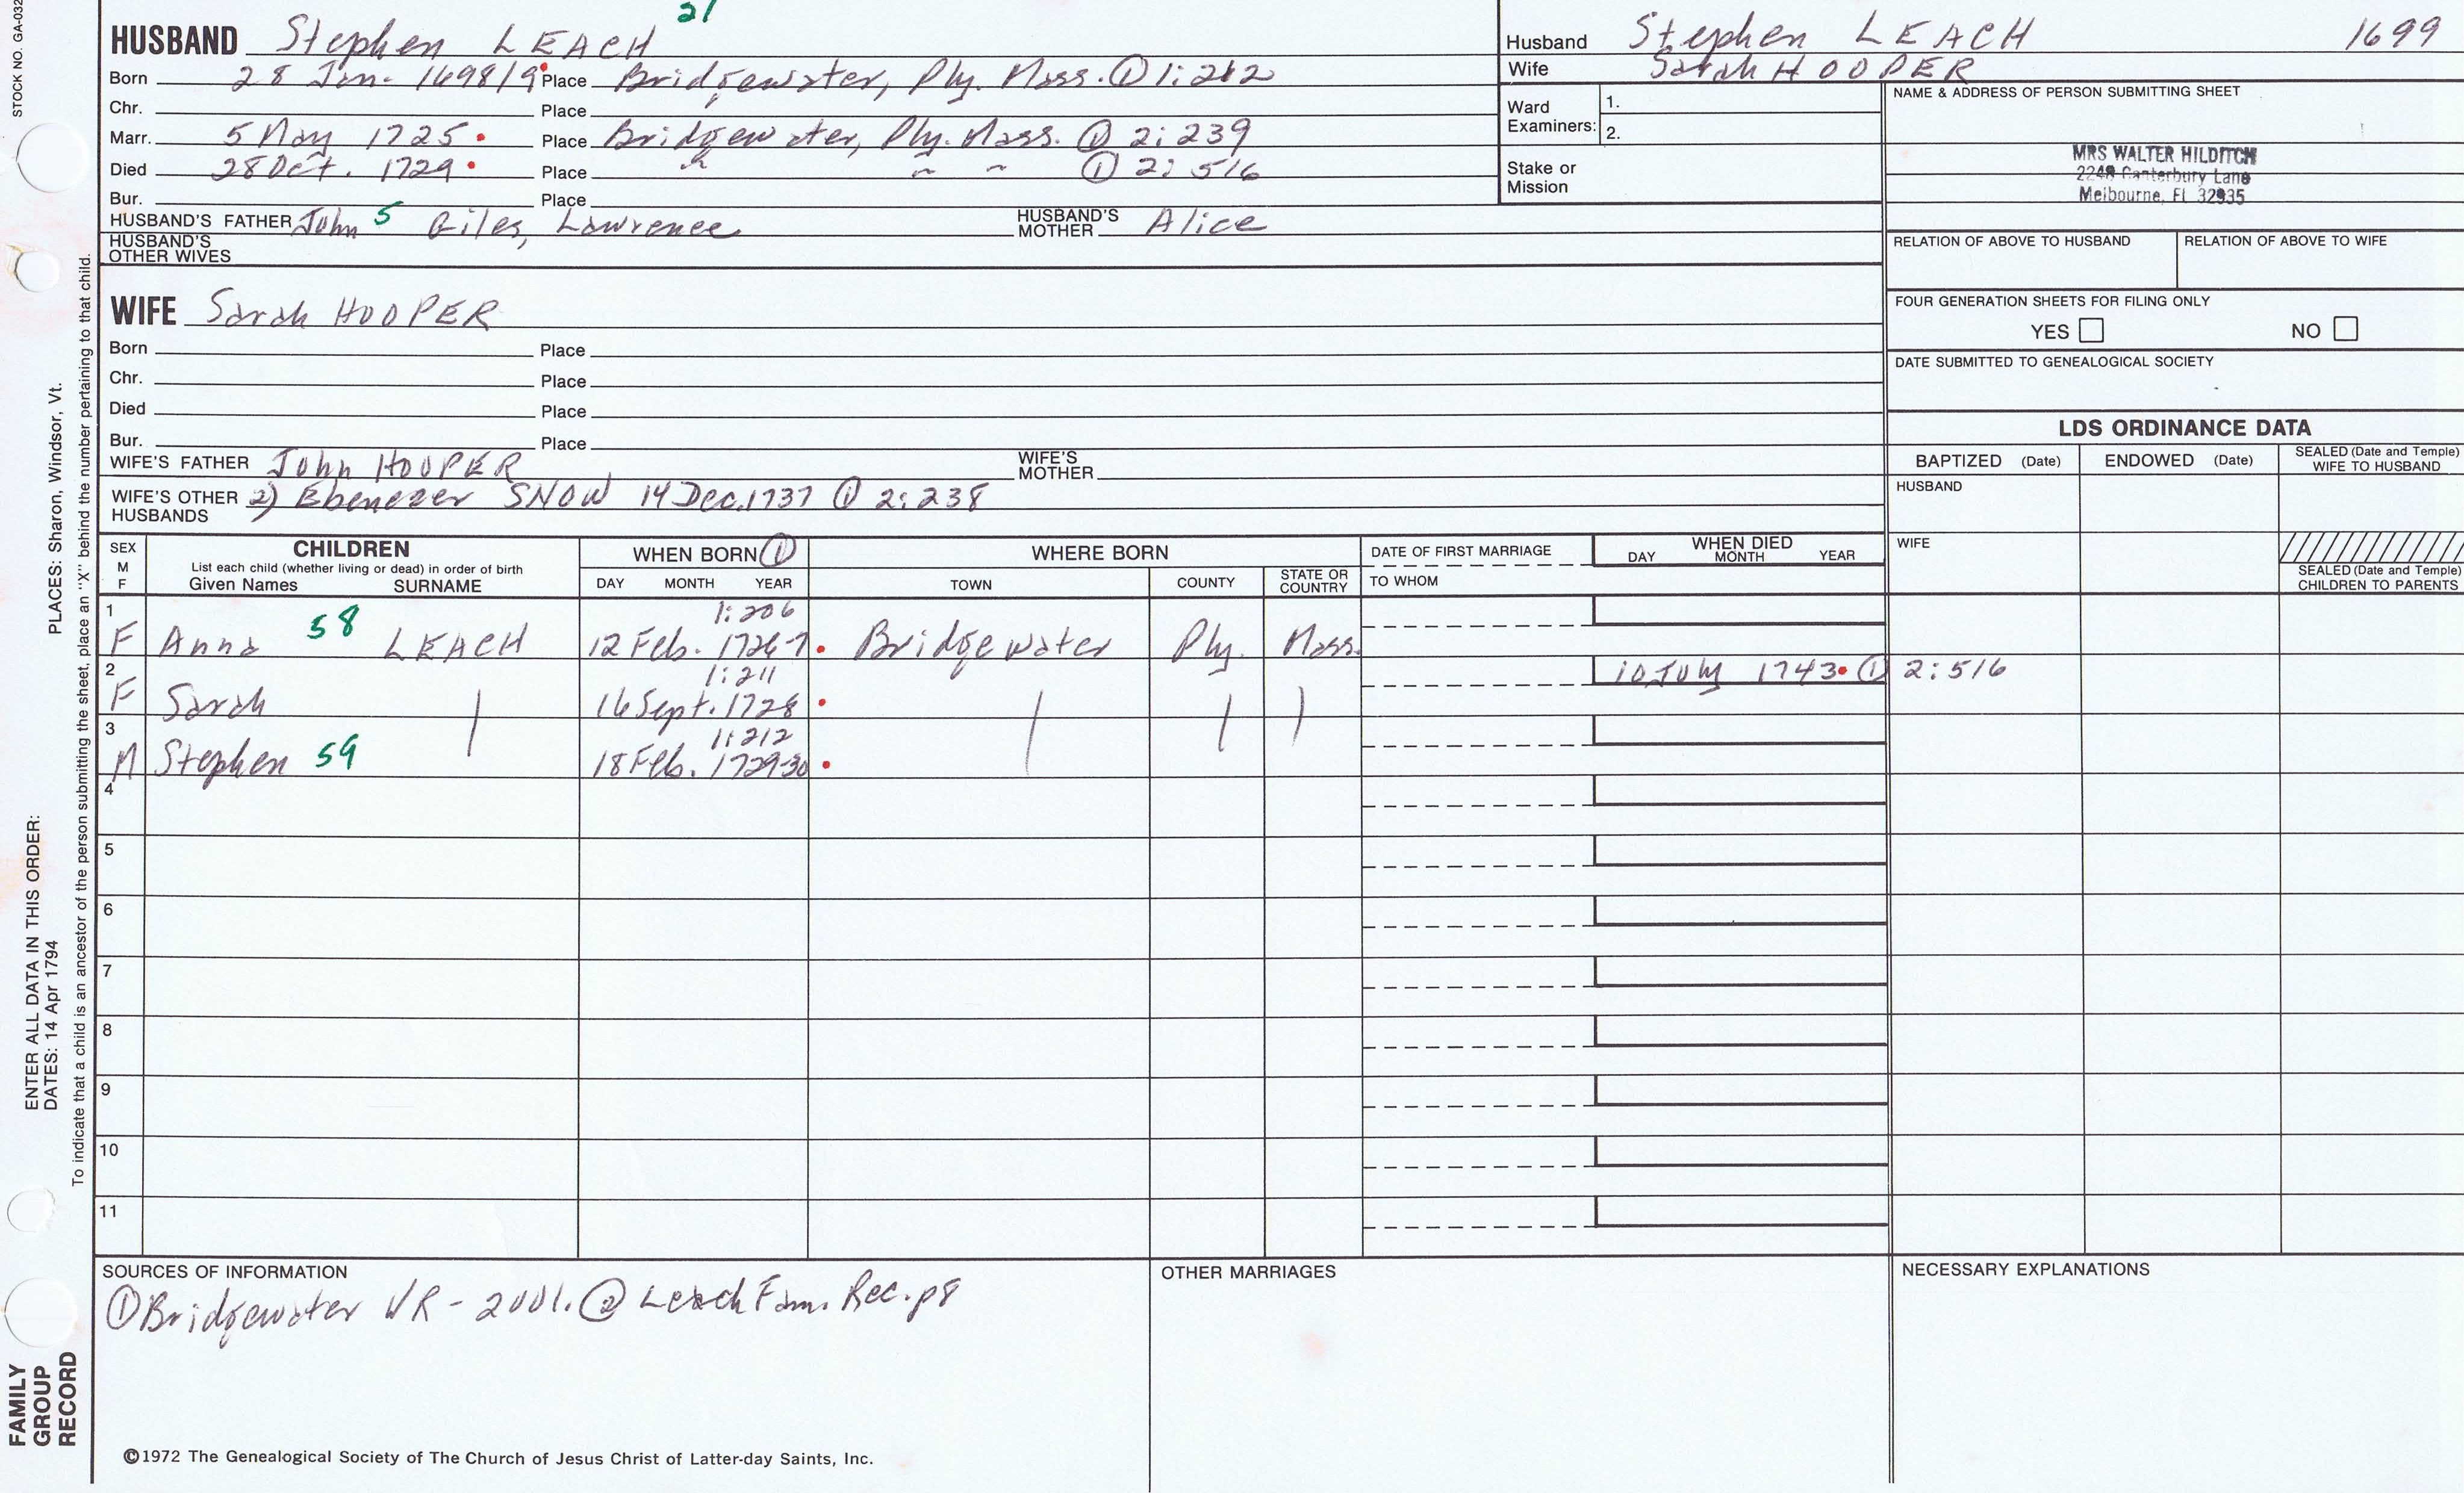 21
HUSBAND Stephen LEACH
Born 28 Jan. 1698/9 Place Bridgewater, Ply. Mass. ① 1:212
Chr. Place
Marr. 5 May 1725 Place Bridgewater, Ply. Mass. ① 2:239
Died 28 Oct. 1729 Place " " " ① 2:516
Bur. Place
HUSBAND'S FATHER John 5 Giles, Lawrence HUSBAND'S MOTHER Alice
HUSBAND'S OTHER WIVES
WIFE Sarah HOOPER
Born Place
Chr. Place
Died Place
Bur. Place
WIFE'S FATHER John HOOPER WIFE'S MOTHER
WIFE'S OTHER HUSBANDS 2) Ebenezer SNOW 14 Dec. 1737 ① 2:238
Husband Stephen LEACH 1699
Wife Sarah HOOPER
Ward Examiners: 1.
2.
Stake or Mission
NAME & ADDRESS OF PERSON SUBMITTING SHEET
MRS WALTER HILDITCH
2248 Canterbury Lane
Melbourne, Fl 32935
RELATION OF ABOVE TO HUSBAND RELATION OF ABOVE TO WIFE
FOUR GENERATION SHEETS FOR FILING ONLY
YES NO
DATE SUBMITTED TO GENEALOGICAL SOCIETY
LDS ORDINANCE DATA
BAPTIZED (Date) ENDOWED (Date) SEALED (Date and Temple) WIFE TO HUSBAND
HUSBAND
WIFE
SEALED (Date and Temple) CHILDREN TO PARENTS
SEX M F CHILDREN WHEN BORN ① WHERE BORN DATE OF FIRST MARRIAGE WHEN DIED
List each child (whether living or dead) in order of birth
Given Names SURNAME DAY MONTH YEAR TOWN COUNTY STATE OR COUNTRY TO WHOM DAY MONTH YEAR
1 1:206
F Anna 58 LEACH 12 Feb. 1726-7 Bridgewater Ply. Mass.
2 1:211 10 July 1743 ① 2:516
F Sarah 16 Sept. 1728
3 1:212
M Stephen 59 18 Feb. 1729-30
4
5
6
7
8
9
10
11
SOURCES OF INFORMATION
① Bridgewater VR - 2 vol. ② Leach Fam. Rec. p8
OTHER MARRIAGES
NECESSARY EXPLANATIONS
©1972 The Genealogical Society of The Church of Jesus Christ of Latter-day Saints, Inc.
STOCK NO. GA-032
ENTER ALL DATA IN THIS ORDER:
DATES: 14 Apr 1794 PLACES: Sharon, Windsor, Vt.
To indicate that a child is an ancestor of the person submitting the sheet, place an "X" behind the number pertaining to that child.
FAMILY
GROUP
RECORD